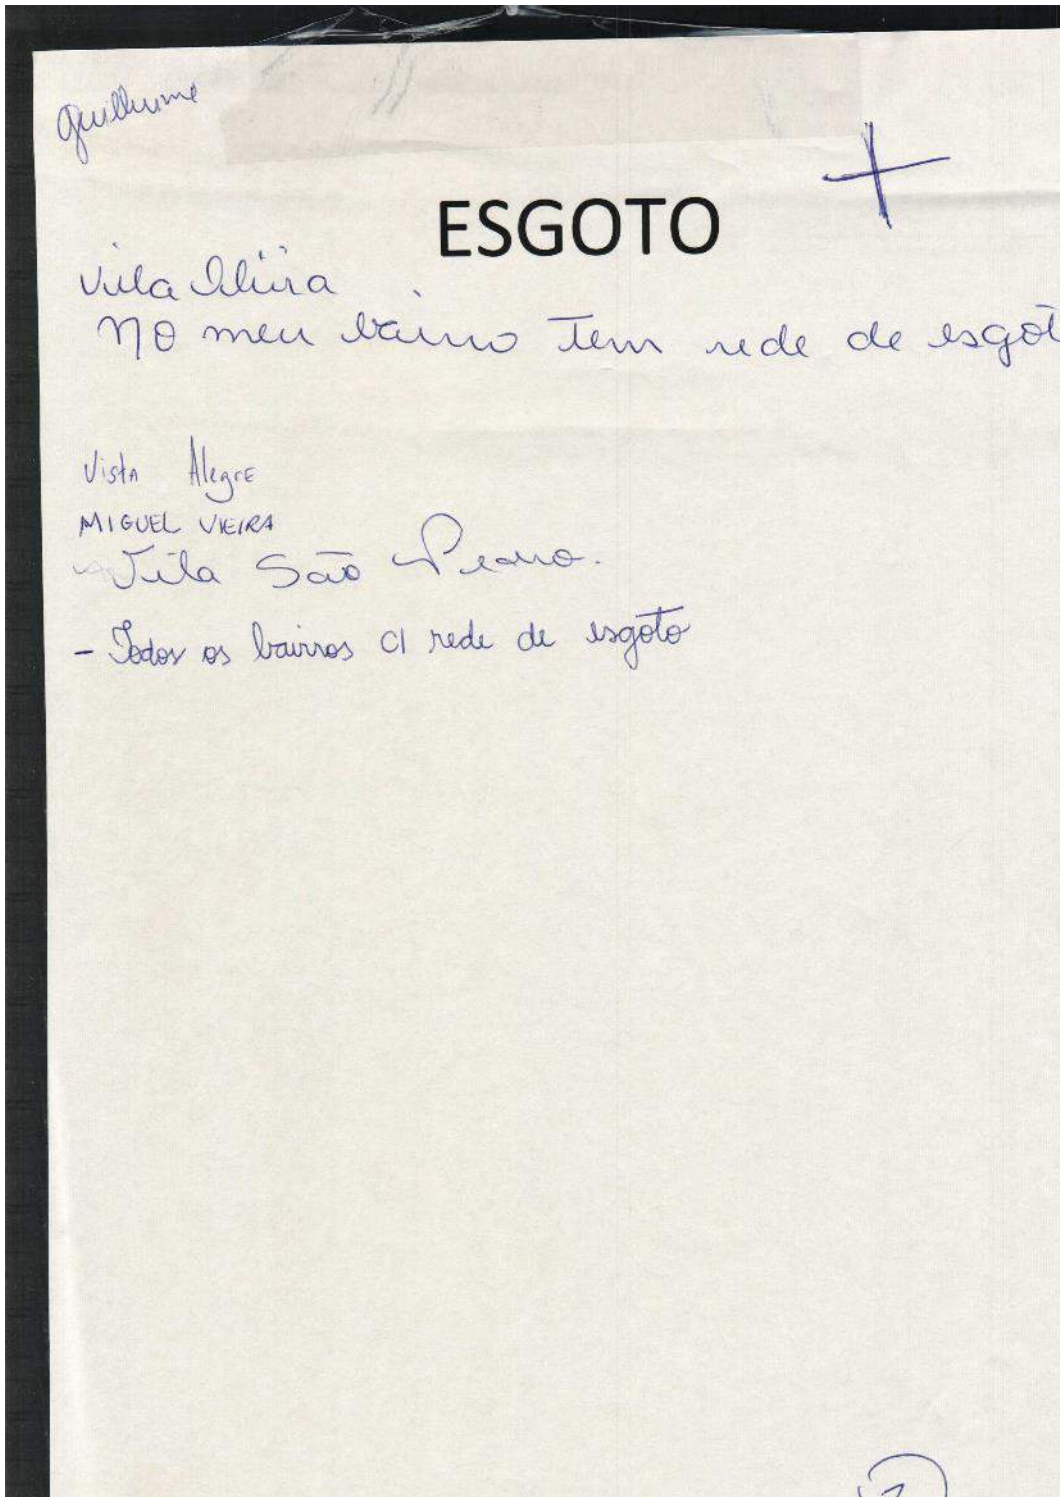 Guilherme
+
ESGOTO
Vila
No meu bairro tem rede de esgot
Vista Alegre
MIGUEL VIEIRA
Vila São Pedro.
- Todos os bairros c/ rede de esgoto